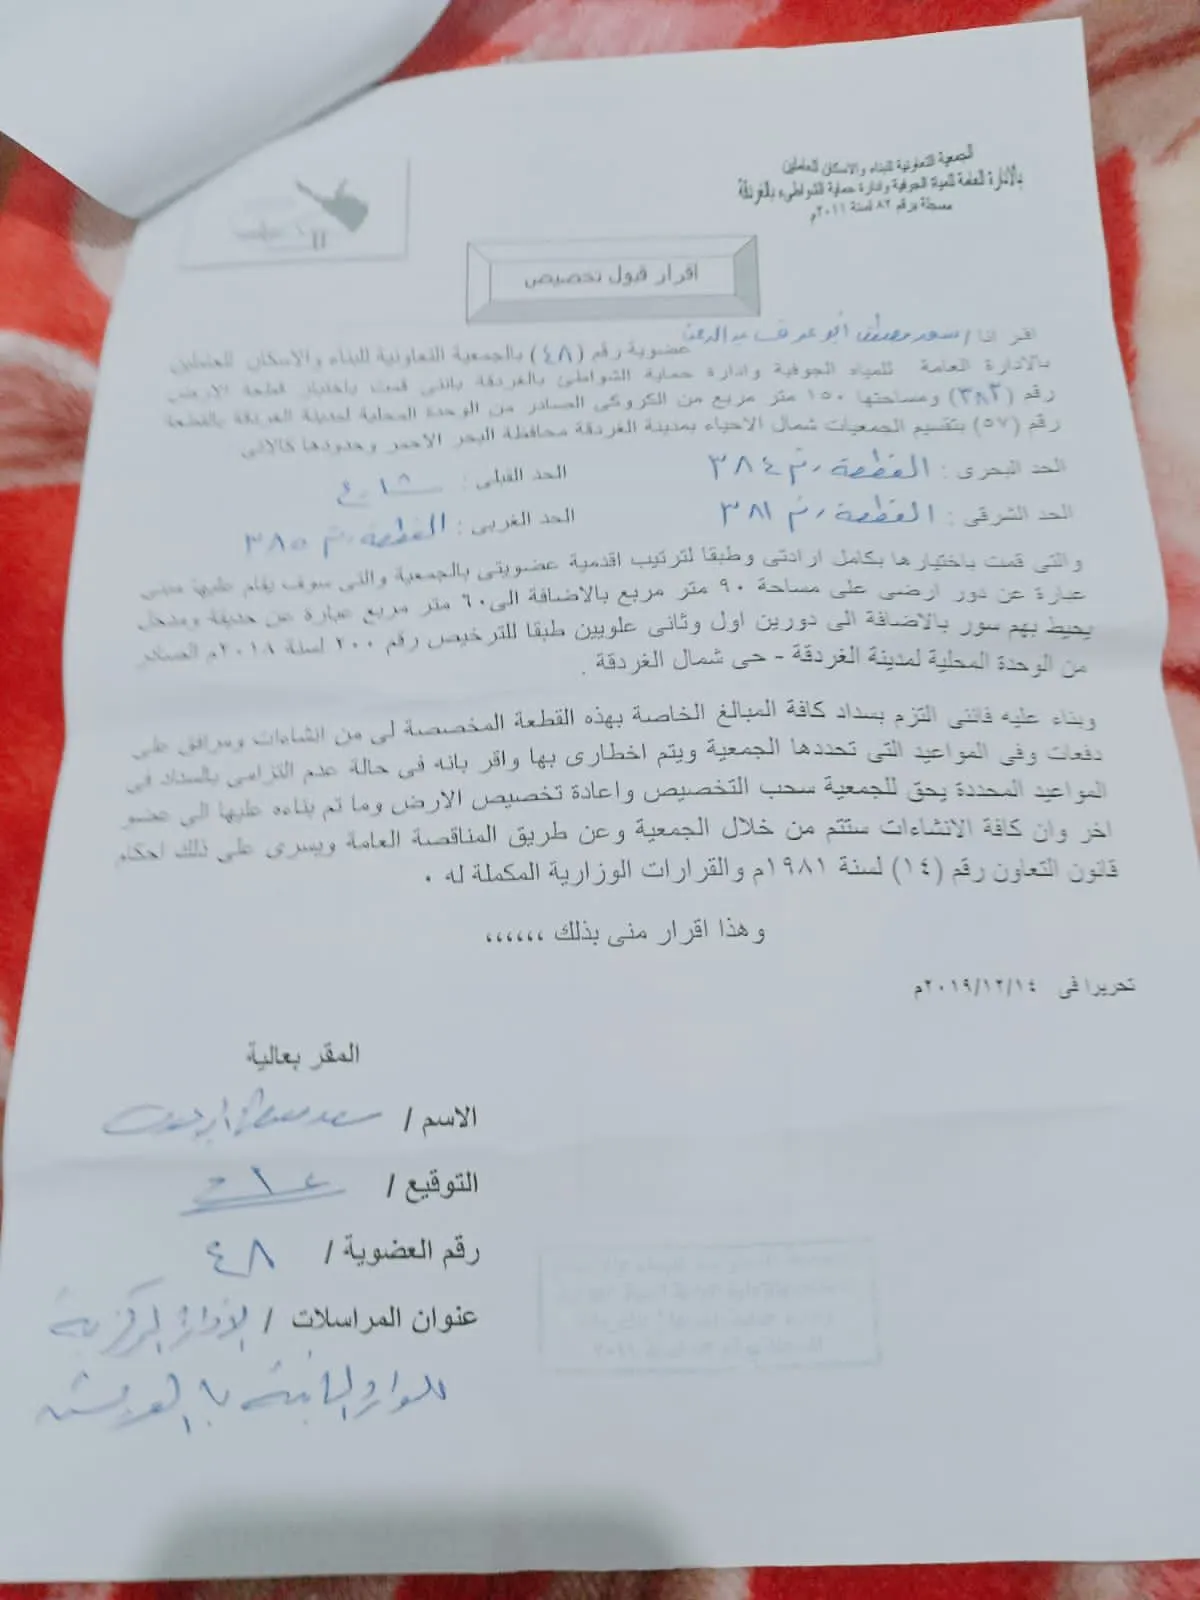 الجمعية التعاونية للبناء والاسكان للعاملين
بالادارة العامة للمياة الجوفية وادارة حماية الشواطىء بالغردقة
مسجلة برقم ٨٢ لسنة ٢٠١١م
اقرار قبول تخصيص
اقر انا / سعد مصطفى ابو عوف عبد الرحمن
عضوية رقم (٤٨) بالجمعية التعاونية للبناء والاسكان للعاملين
بالادارة العامة للمياه الجوفية وادارة حماية الشواطئ بالغردقة باننى قمت باختيار قطعة الارض
رقم (٣٨٣) ومساحتها ١٥٠ متر مربع من الكروكى الصادر من الوحدة المحلية لمدينة الغردقة بالقطعة
رقم (٥٧) بتقسيم الجمعيات شمال الاحياء بمدينة الغردقة محافظة البحر الاحمر وحدودها كالاتى
الحد البحرى : القطعة رقم ٣٨٤ الحد القبلى : شارع
الحد الشرقى : القطعة رقم ٣٨١ الحد الغربى : القطعة رقم ٣٨٥
والتى قمت باختيارها بكامل ارادتى وطبقا لترتيب اقدمية عضويتى بالجمعية والتى سوف يقام عليها مبنى
عبارة عن دور ارضى على مساحة ٩٠ متر مربع بالاضافة الى ٦٠ متر مربع عبارة عن حديقة ومدخل
يحيط بهم سور بالاضافة الى دورين اول وثانى علويين طبقا للترخيص رقم ٢٠٠ لسنة ٢٠١٨م الصادر
من الوحدة المحلية لمدينة الغردقة - حى شمال الغردقة .
وبناء عليه فاننى التزم بسداد كافة المبالغ الخاصة بهذه القطعة المخصصة لى من انشاءات ومرافق على
دفعات وفى المواعيد التى تحددها الجمعية ويتم اخطارى بها واقر بانه فى حالة عدم التزامى بالسداد فى
المواعيد المحددة يحق للجمعية سحب التخصيص واعادة تخصيص الارض وما تم بناءه عليها الى عضو
اخر وان كافة الانشاءات ستتم من خلال الجمعية وعن طريق المناقصة العامة ويسرى على ذلك احكام
قانون التعاون رقم (١٤) لسنة ١٩٨١م والقرارات الوزارية المكملة له .
وهذا اقرار منى بذلك ،،،،،،
تحريرا فى ٢٠١٩/١٢/١٤م
المقر بعالية
الاسم / سعد مصطفى ابو عوف
التوقيع /
رقم العضوية / ٤٨
عنوان المراسلات / الادارة المركزية
للموارد المائية بالغردقة